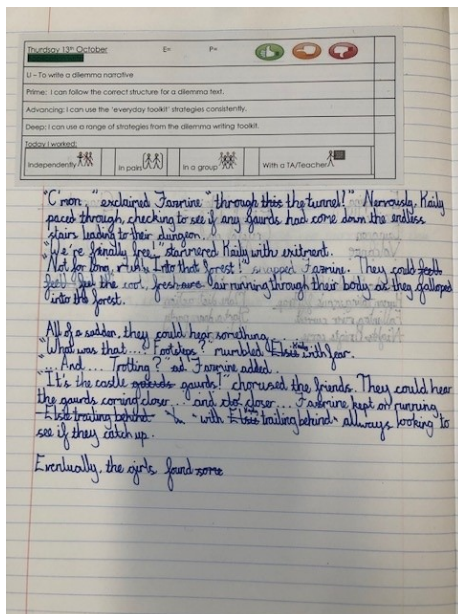 Thurdsay 13th October E= P=
LI – To write a dilemma narrative
Prime: I can follow the correct structure for a dilemma text.
Advancing: I can use the 'everyday toolkit' strategies consistently.
Deep: I can use a range of strategies from the dilemma writing toolkit.
Today I worked:
Independently In pairs In a group With a TA/Teacher
"C'mon," exclaimed Fasmine "through this the tunnel!" Nervously, Kaily
paced through, checking to see if any gaurds had come down the endless
stairs leading to their dungeon.
"We're finally free!" stammered Kaily with exitment.
"Not for long, rush into that forest!" snapped Fasmine. They could feel
feel the cool, fresh air running through their body as they galloped
into the forest.
"All of a sadden, they could hear something.
"What was that.... Footsteps? mumbled Elsie Kaily with fear.
"...And.... Trotting?" Fasmine added.
"It's the castle gaurds gaurds! chorused the friends. They could hear
the gaurds coming closer... and closer.... Fasmine kept on running
Elsie trailing behind with Elsie Kaily trailing behind allways looking to
see if they catch up.
Eventually, the girls found some